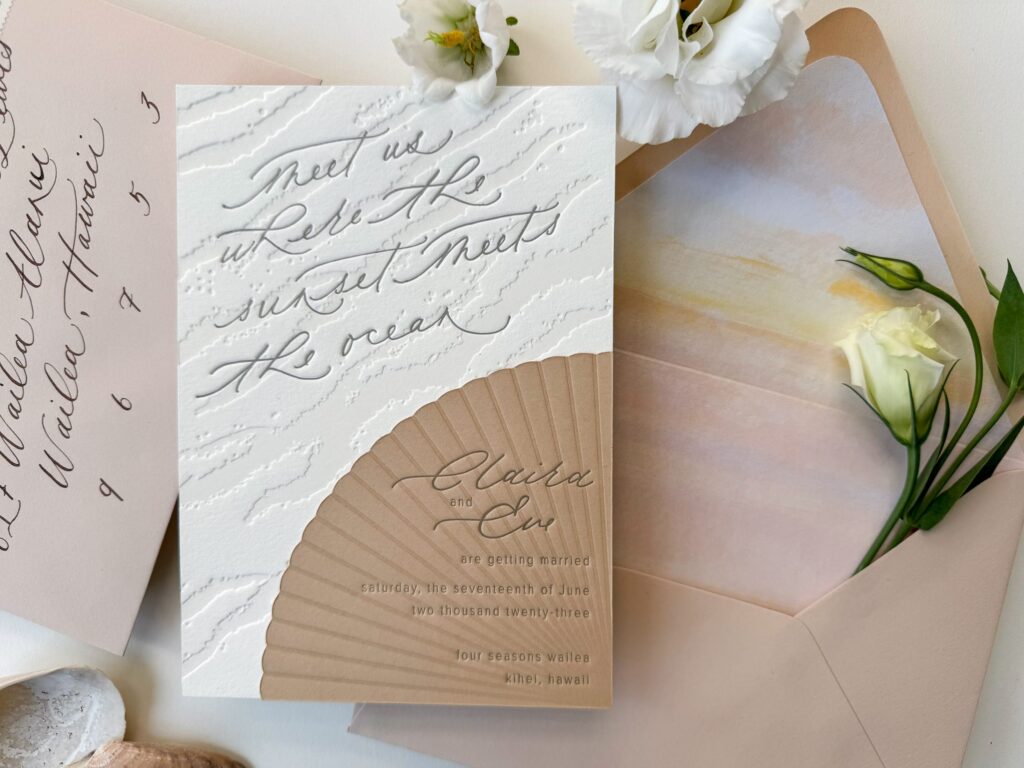 meet us
where the
sunset meets
the ocean
Claira
and
Eve
are getting married
saturday, the seventeenth of June
two thousand twenty-three
four seasons wailea
kihei, hawaii
Wailea Alanui
Wailea, Hawaii
9 6 7 5 3